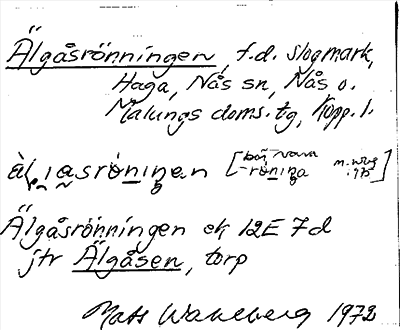 Älgåsrönningen, f.d. slogmark,
Haga, Nås sn, Nås o.
Malungs doms. tg, Kopp. l.
[böj. vann m. wbg
rö̀nıŋa 1975]
Älgåsrönningen ek 12E 7d
jtr Älgåsen, torp
Mats Wahlberg 1972